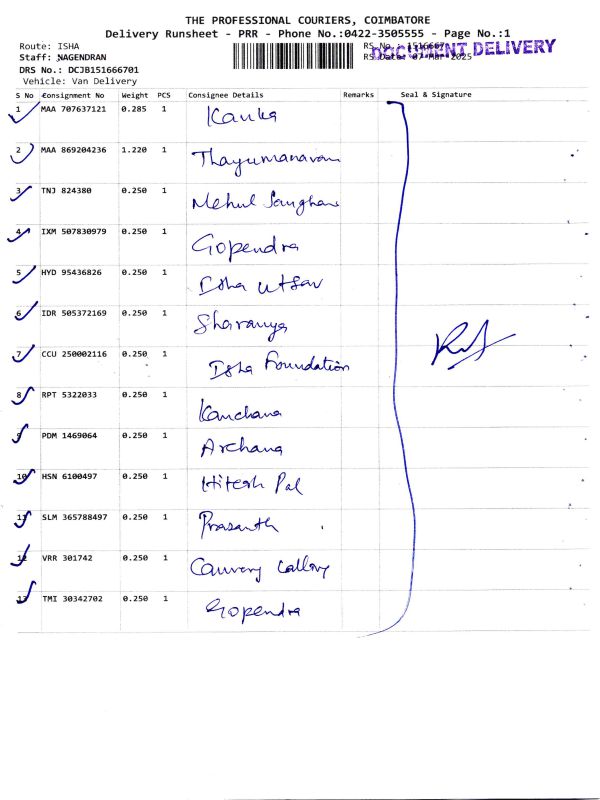 THE PROFESSIONAL COURIERS, COIMBATORE
Delivery Runsheet - PRR - Phone No.:0422-3505555 - Page No.:1
Route: ISHA
RS No.: 151666701
DOCUMENT DELIVERY
Staff: NAGENDRAN
RS Date: 07-Mar-2025
DRS No.: DCJB151666701
Vehicle: Van Delivery
S No Consignment No Weight PCS Consignee Details Remarks Seal & Signature
1 MAA 707637121 0.285 1 Kanka
2 MAA 869204236 1.220 1 Thayumanavan
3 TNJ 824380 0.250 1 Mehul Sanghav
4 IXM 507830979 0.250 1 Gopendra
5 HYD 95436826 0.250 1 Isha Utsav
6 IDR 505372169 0.250 1 Sharanya
7 CCU 250002116 0.250 1 Isha Foundation
8 RPT 5322033 0.250 1 Kanchana
9 PDM 1469064 0.250 1 Archana
10 HSN 6100497 0.250 1 Hitesh Pal
11 SLM 365788497 0.250 1 Prasanth
12 VRR 301742 0.250 1 Cauvery Calling
13 TMI 30342702 0.250 1 Gopendra